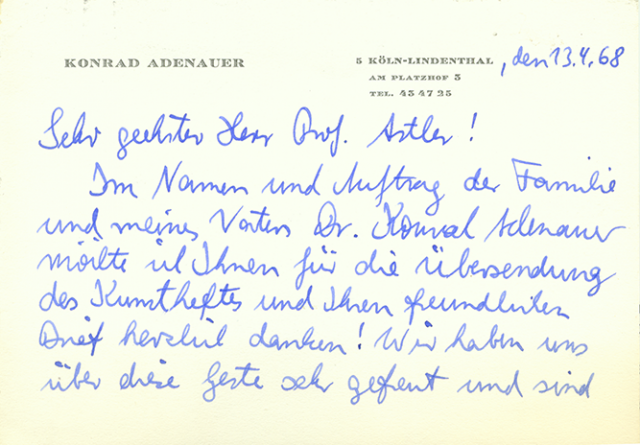 KONRAD ADENAUER
5 KÖLN-LINDENTHAL, den 13.4.68
AM PLATZHOF 3
TEL. 43 47 25
Sehr geehrter Herr Prof. Astler!
Im Namen und Auftrag der Familie
und meines Vaters Dr. Konrad Adenauer
möchte ich Ihnen für die Übersendung
des Kunstheftes und Ihren freundlichen
Brief herzlich danken! Wir haben uns
über diese Geste sehr gefreut und sind